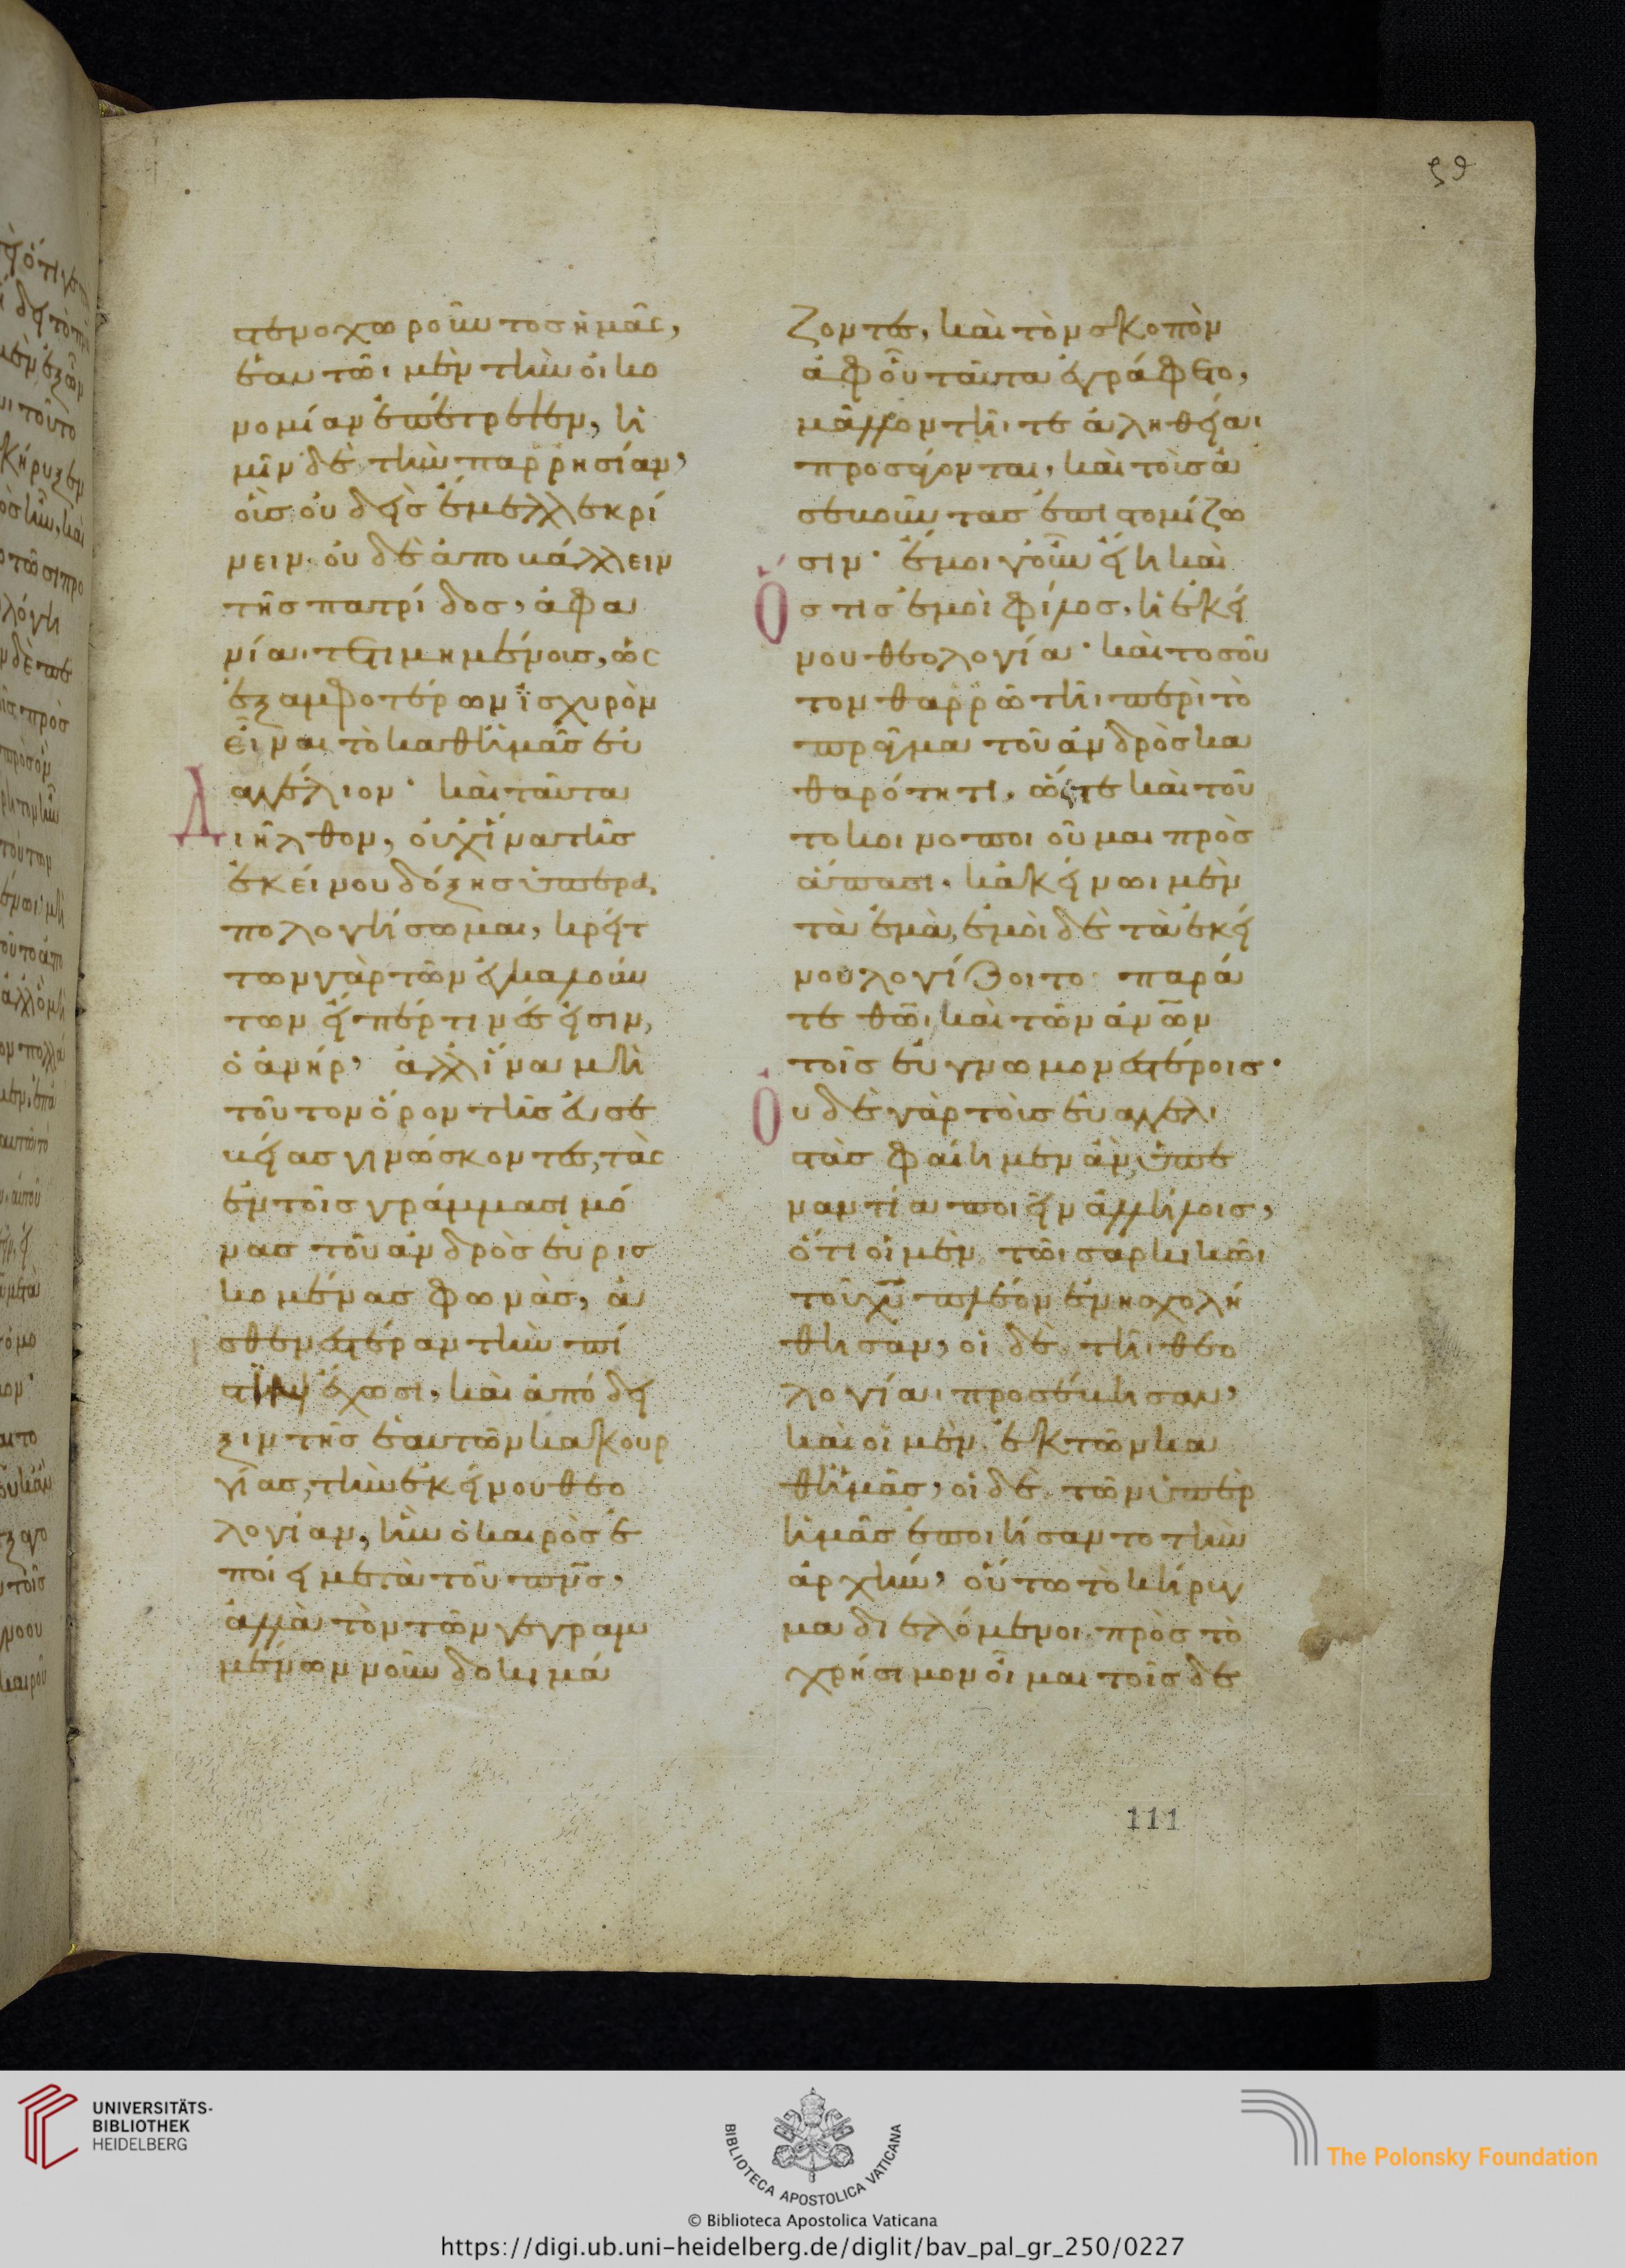 στενοχωροῦντος ἡμᾶς,
ἑαυτῶι μὲν τὴν οἰκο
νομίαν ἐπέτρεψεν, ἡ
μῖν δὲ τὴν παρρησίαν,
οὓς οὐδεὶς ἔμελλε κρί
νειν. οὐδὲ ἀποβάλλειν
τῆς πατρίδος, ἀφα
νίαι τετιμημένους, ὡς
ἐξ ἀμφοτέρων ἰσχυρὸν
εἶναι τὸ καθ ἡμᾶς εὐ
αγγέλιον· καὶ ταῦτα
Διῆλθον, οὐχ ἵνα τῆς
ἐκείνου δόξης ὑπερα
πολογήσωμαι, κρείτ
των γὰρ τῶν ἐγκαλούν
των εἴπέρ τινές εἰσιν,
ὁ ἀνήρ, ἀλλ ἵνα μὴ
τοῦτον ὅρον τῆς εὐσε
βείας γινώσκοντες, τὰς
ἐν τοῖς γράμμασι μό
νας τοῦ ἀνδρὸς εὑρισ
κομένας φωνὰς, ἀ
σθενεστέραν τὴν πί
στιν ἔχωσι, καὶ ἀπόδει
ξιν τῆς ἑαυτῶν κακουρ
γίας, τὴν ἐκείνου θεο
λογίαν, ἣν ὁ καιρὸς ἐ
ποίει μετὰ τοῦ πν̅ς,
ἀλλὰ τὸν τῶν γεγραμ
μένων νοῦν δοκιμά
ζοντες, καὶ τὸν σκοπὸν
ἀφ οὗ ταῦτα ἐγράφετο,
μᾶλλον τῆι τε ἀληθείαι
προσείονται, καὶ τοὺς ἀ
σεβοῦντας ἐπιστομίζω
σιν· ἔμοι γοῦν εἴη καὶ
Ὅστις ἐμοὶ φίλος, ἡ ἐκεί
νου θεολογία· καὶ τοσοῦ
τον θαρρῶ τῆι περὶ τὸ
πρᾶγμα τοῦ ἀνδρὸς κα
θαρότητι, ὥστε καὶ τοῦ
το κοινοποιοῦμαι πρὸς
ἅπασι. κἀκείνωι μὲν
τὰ ἐμὰ, ἐμοὶ δὲ τὰ ἐκεί
νου λογίζοιτο παρά
τε θω̅ι καὶ τῶν ἀνω̅ν
τοῖς εὐγνωμονεστέροις·
Οὐδὲ γὰρ τοὺς εὐαγγελι
στὰς φαίημεν ἂν, ὑπε
ναντία ποιεῖν ἀλλήλοις,
ὅτι οἱ μὲν τῶι σαρκικῶι
τοῦ χυ̅ πλέον ἐνησχολή
θησαν, οἱ δὲ τῆι θεο
λογίαι προσέβησαν,
καὶ οἱ μὲν ἐκ τῶν κα
θ ἡμᾶς, οἱ δὲ τῶν ὑπὲρ
ἡμᾶς ἐποιήσαντο τὴν
ἀρχήν, οὕτω τὸ κήρυγ
μα διελόμενοι πρὸς τὸ
χρήσιμον οἶμαι τοῖς δε
111
UNIVERSITÄTS-
BIBLIOTHEK
HEIDELBERG
BIBLIOTECA APOSTOLICA VATICANA
The Polonsky Foundation
© Biblioteca Apostolica Vaticana
https://digi.ub.uni-heidelberg.de/diglit/bav_pal_gr_250/0227